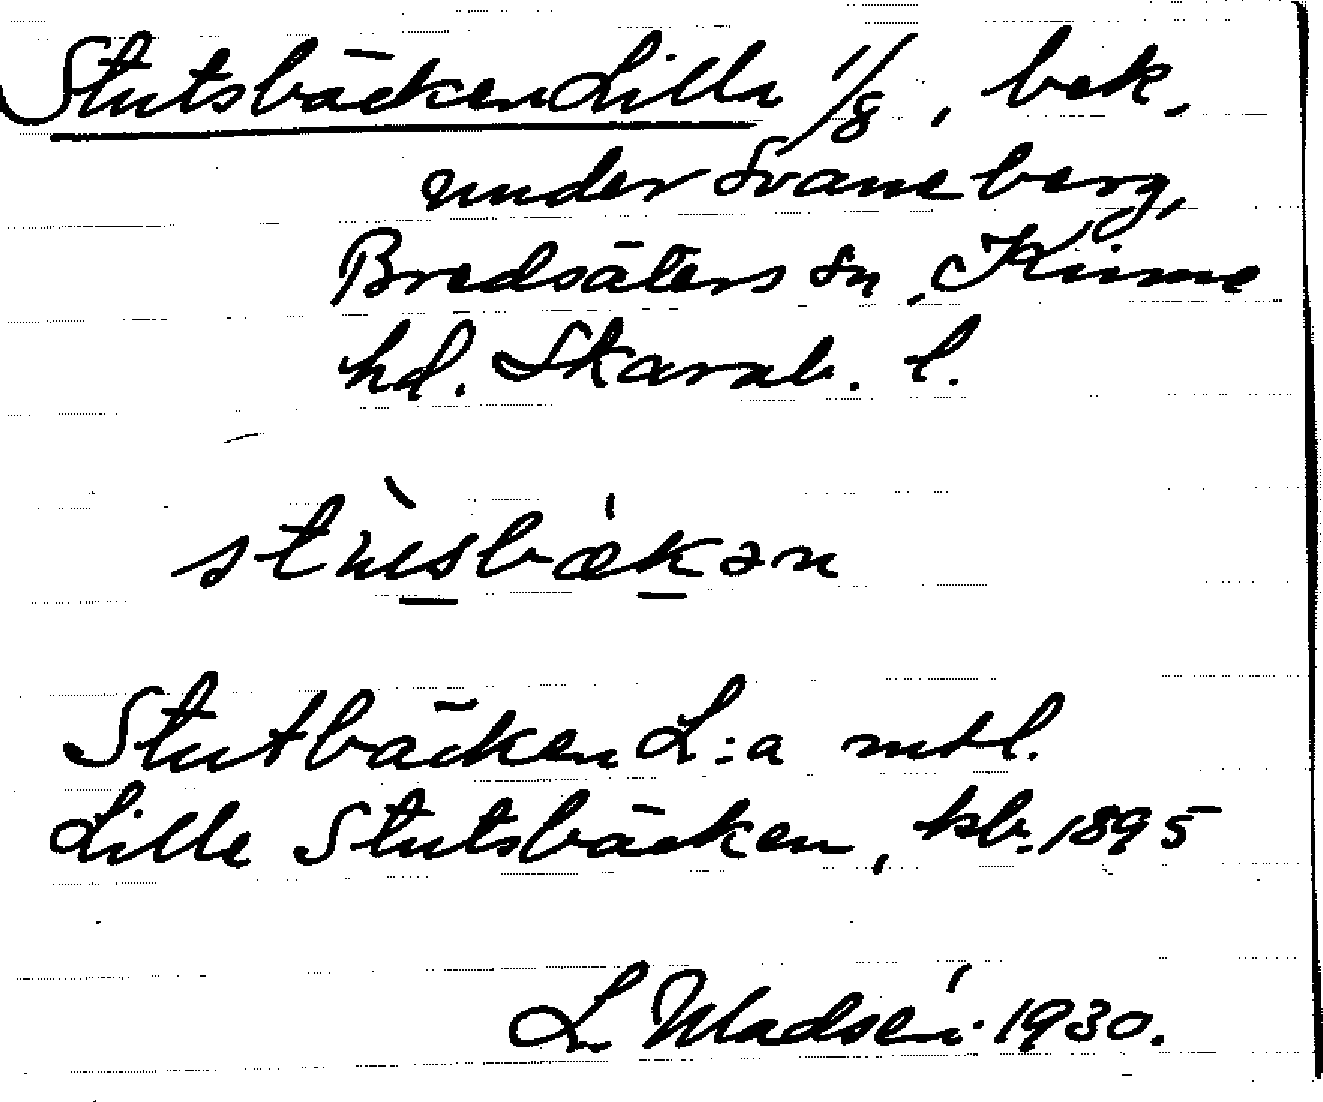 Stutsbäcken Lilla 1/8, bek.
under Svaneberg,
Bredsäters sn, Kinne
hd. Skarab. l.
stu̇̀sbǽkən
Stutbäcken L:a mtl.
Lille Stutsbäcken, kb. 1895
L Madsén. 1930.